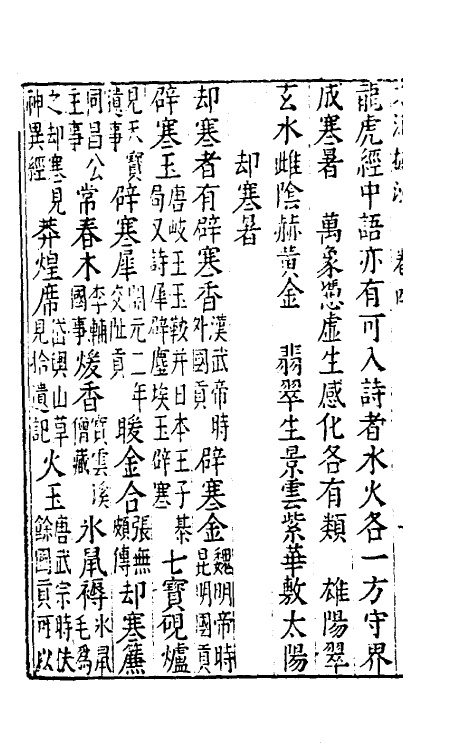 龍虎經中語亦有可入詩者水火各一方守界
成寒暑　萬象憑虛生感化各有類　雄陽翠
玄水雌陰赫黃金　翡翠生景雲紫華敷太陽
却寒暑
却寒者有辟寒香漢武帝時外國貢辟寒金魏明帝時昆明國貢
辟寒玉唐岐王玉鞍并日本王子棊局又詩犀辟塵埃玉辟寒七寶硯爐
見天寶遺事辟寒犀開元二年交趾貢暖金合張無頗傳却寒簾
同昌公主事常春木李輔國事煖香寶雲溪僧藏氷鼠褥氷鼠毛爲
之却寒見神異經莽煌席岱輿山草見拾遺記火玉唐武宗時伕餘國貢可以